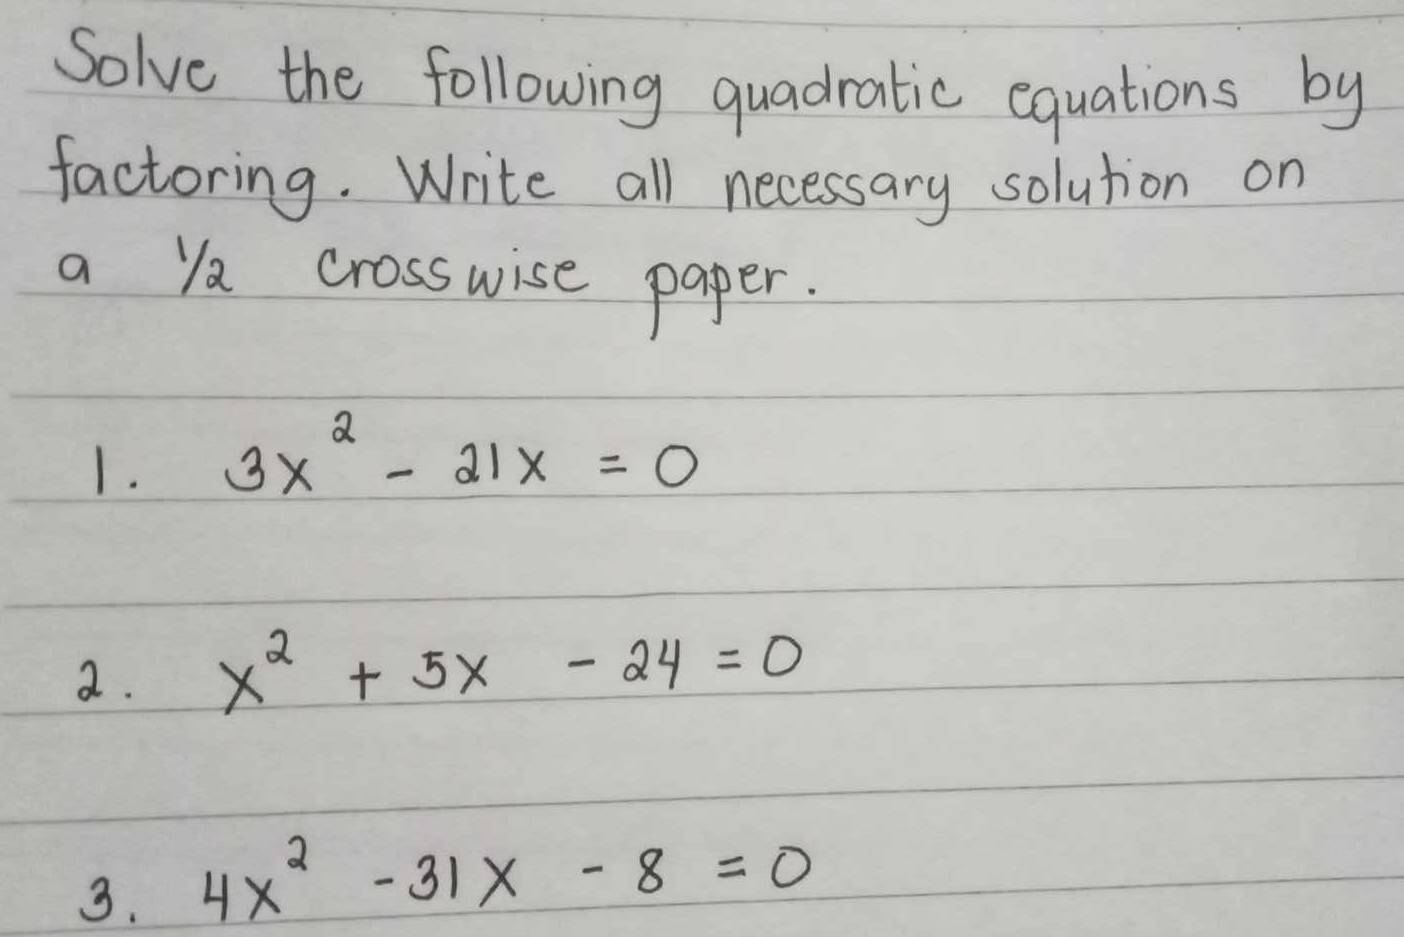 Solve the following quadratic equations by
factoring. Write all necessary solution on
a 1/2 crosswise paper.
1. 3x² - 21x = 0
2. x² + 5x - 24 = 0
3. 4x² - 31x - 8 = 0